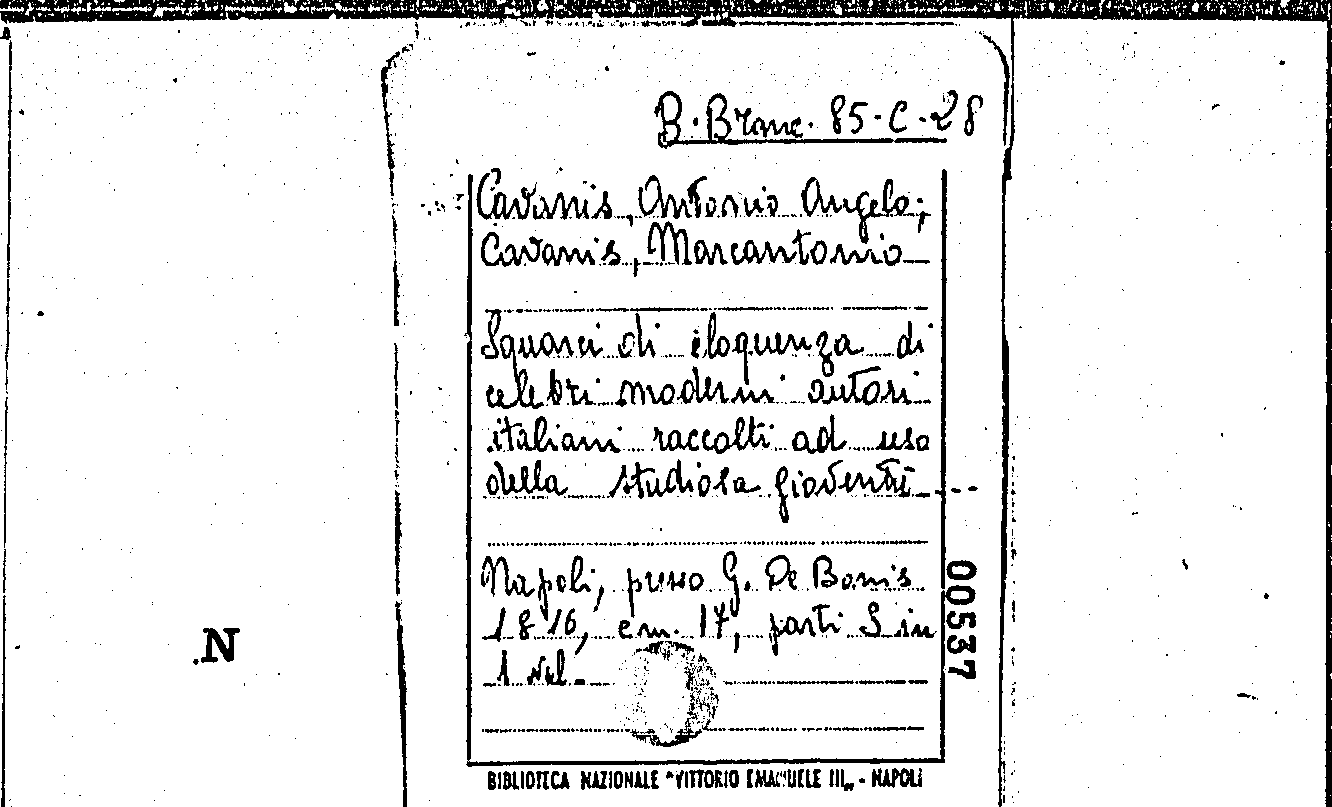 B. Branc. 85-C-28
Cavanis, Antonio Angelo;
Cavanis, Marcantonio
Squarci di eloquenza di
celebri moderni autori
italiani raccolti ad uso
della studiosa gioventù
Napoli, presso G. De Bonis
1816, cm. 17, parti S in
1 vol.
00537
.N
BIBLIOTECA NAZIONALE "VITTORIO EMANUELE III„ - NAPOLI